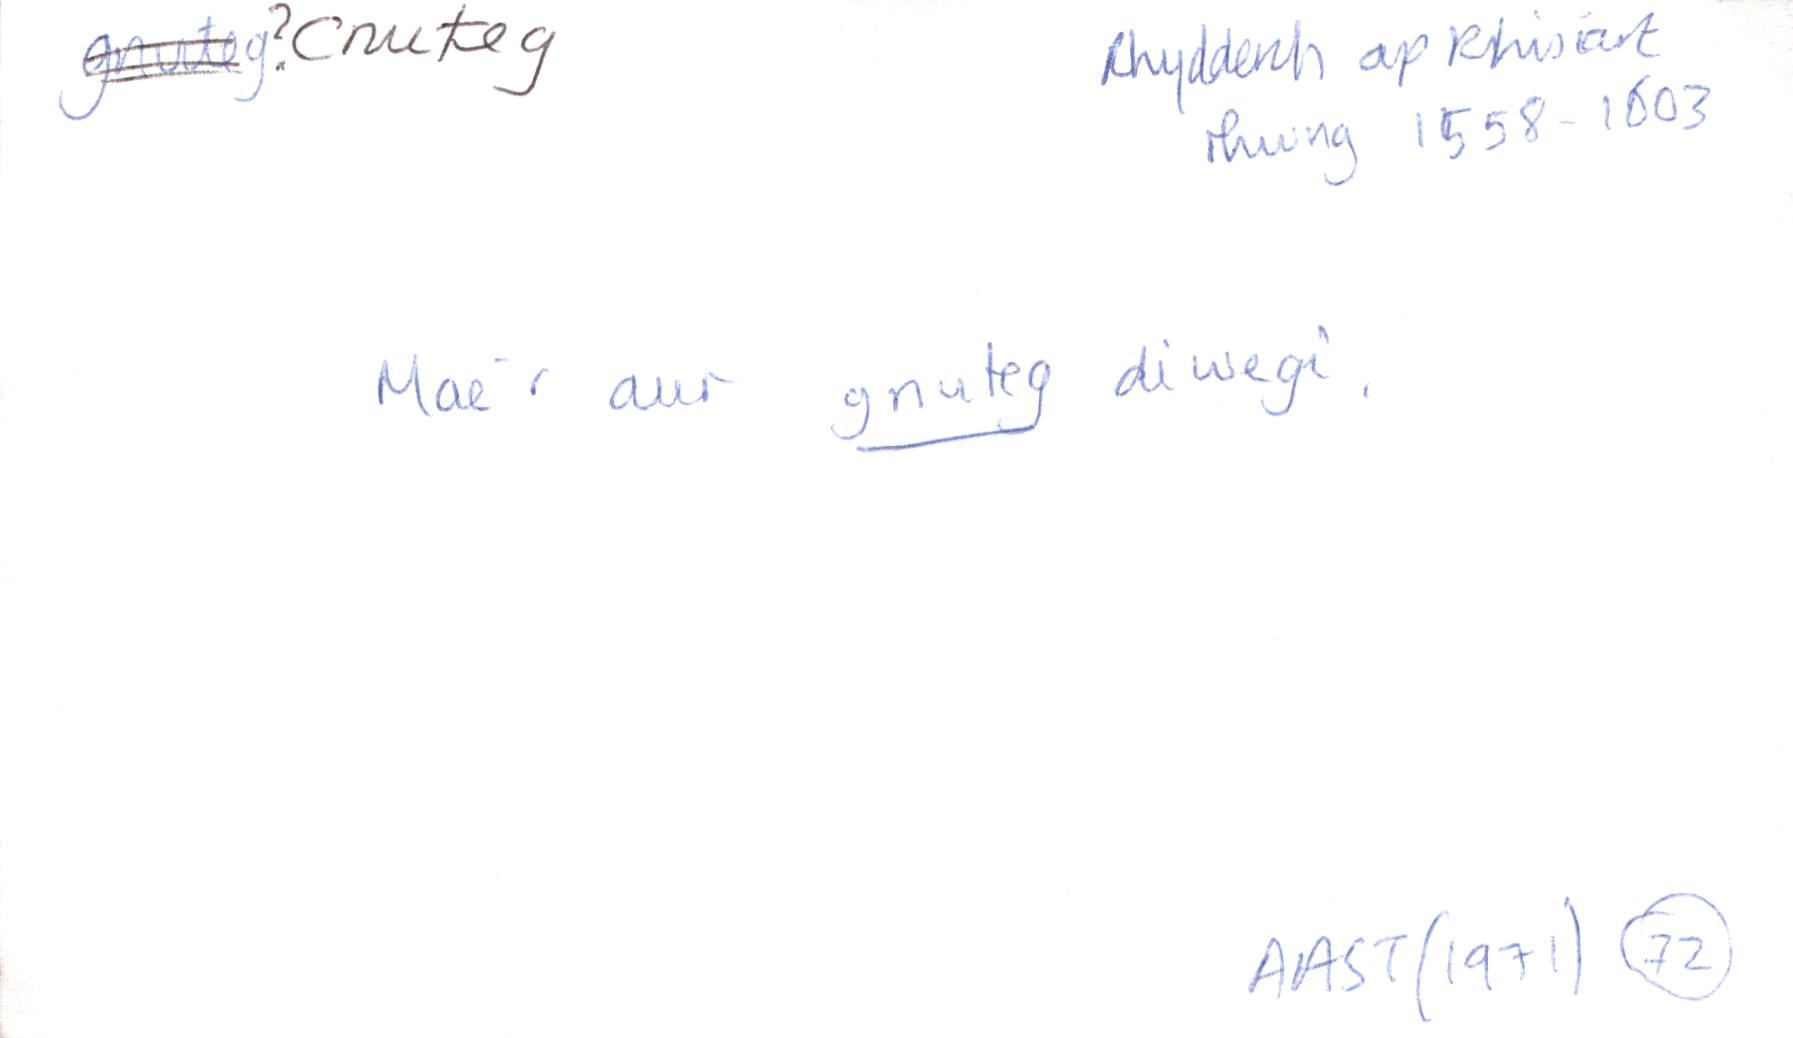 gnuteg? Cnuteg
Rhydderch ap Rhisiart
rhwng 1558-1603
Mae'r aur gnuteg diwegi.
AAST (1971) 72